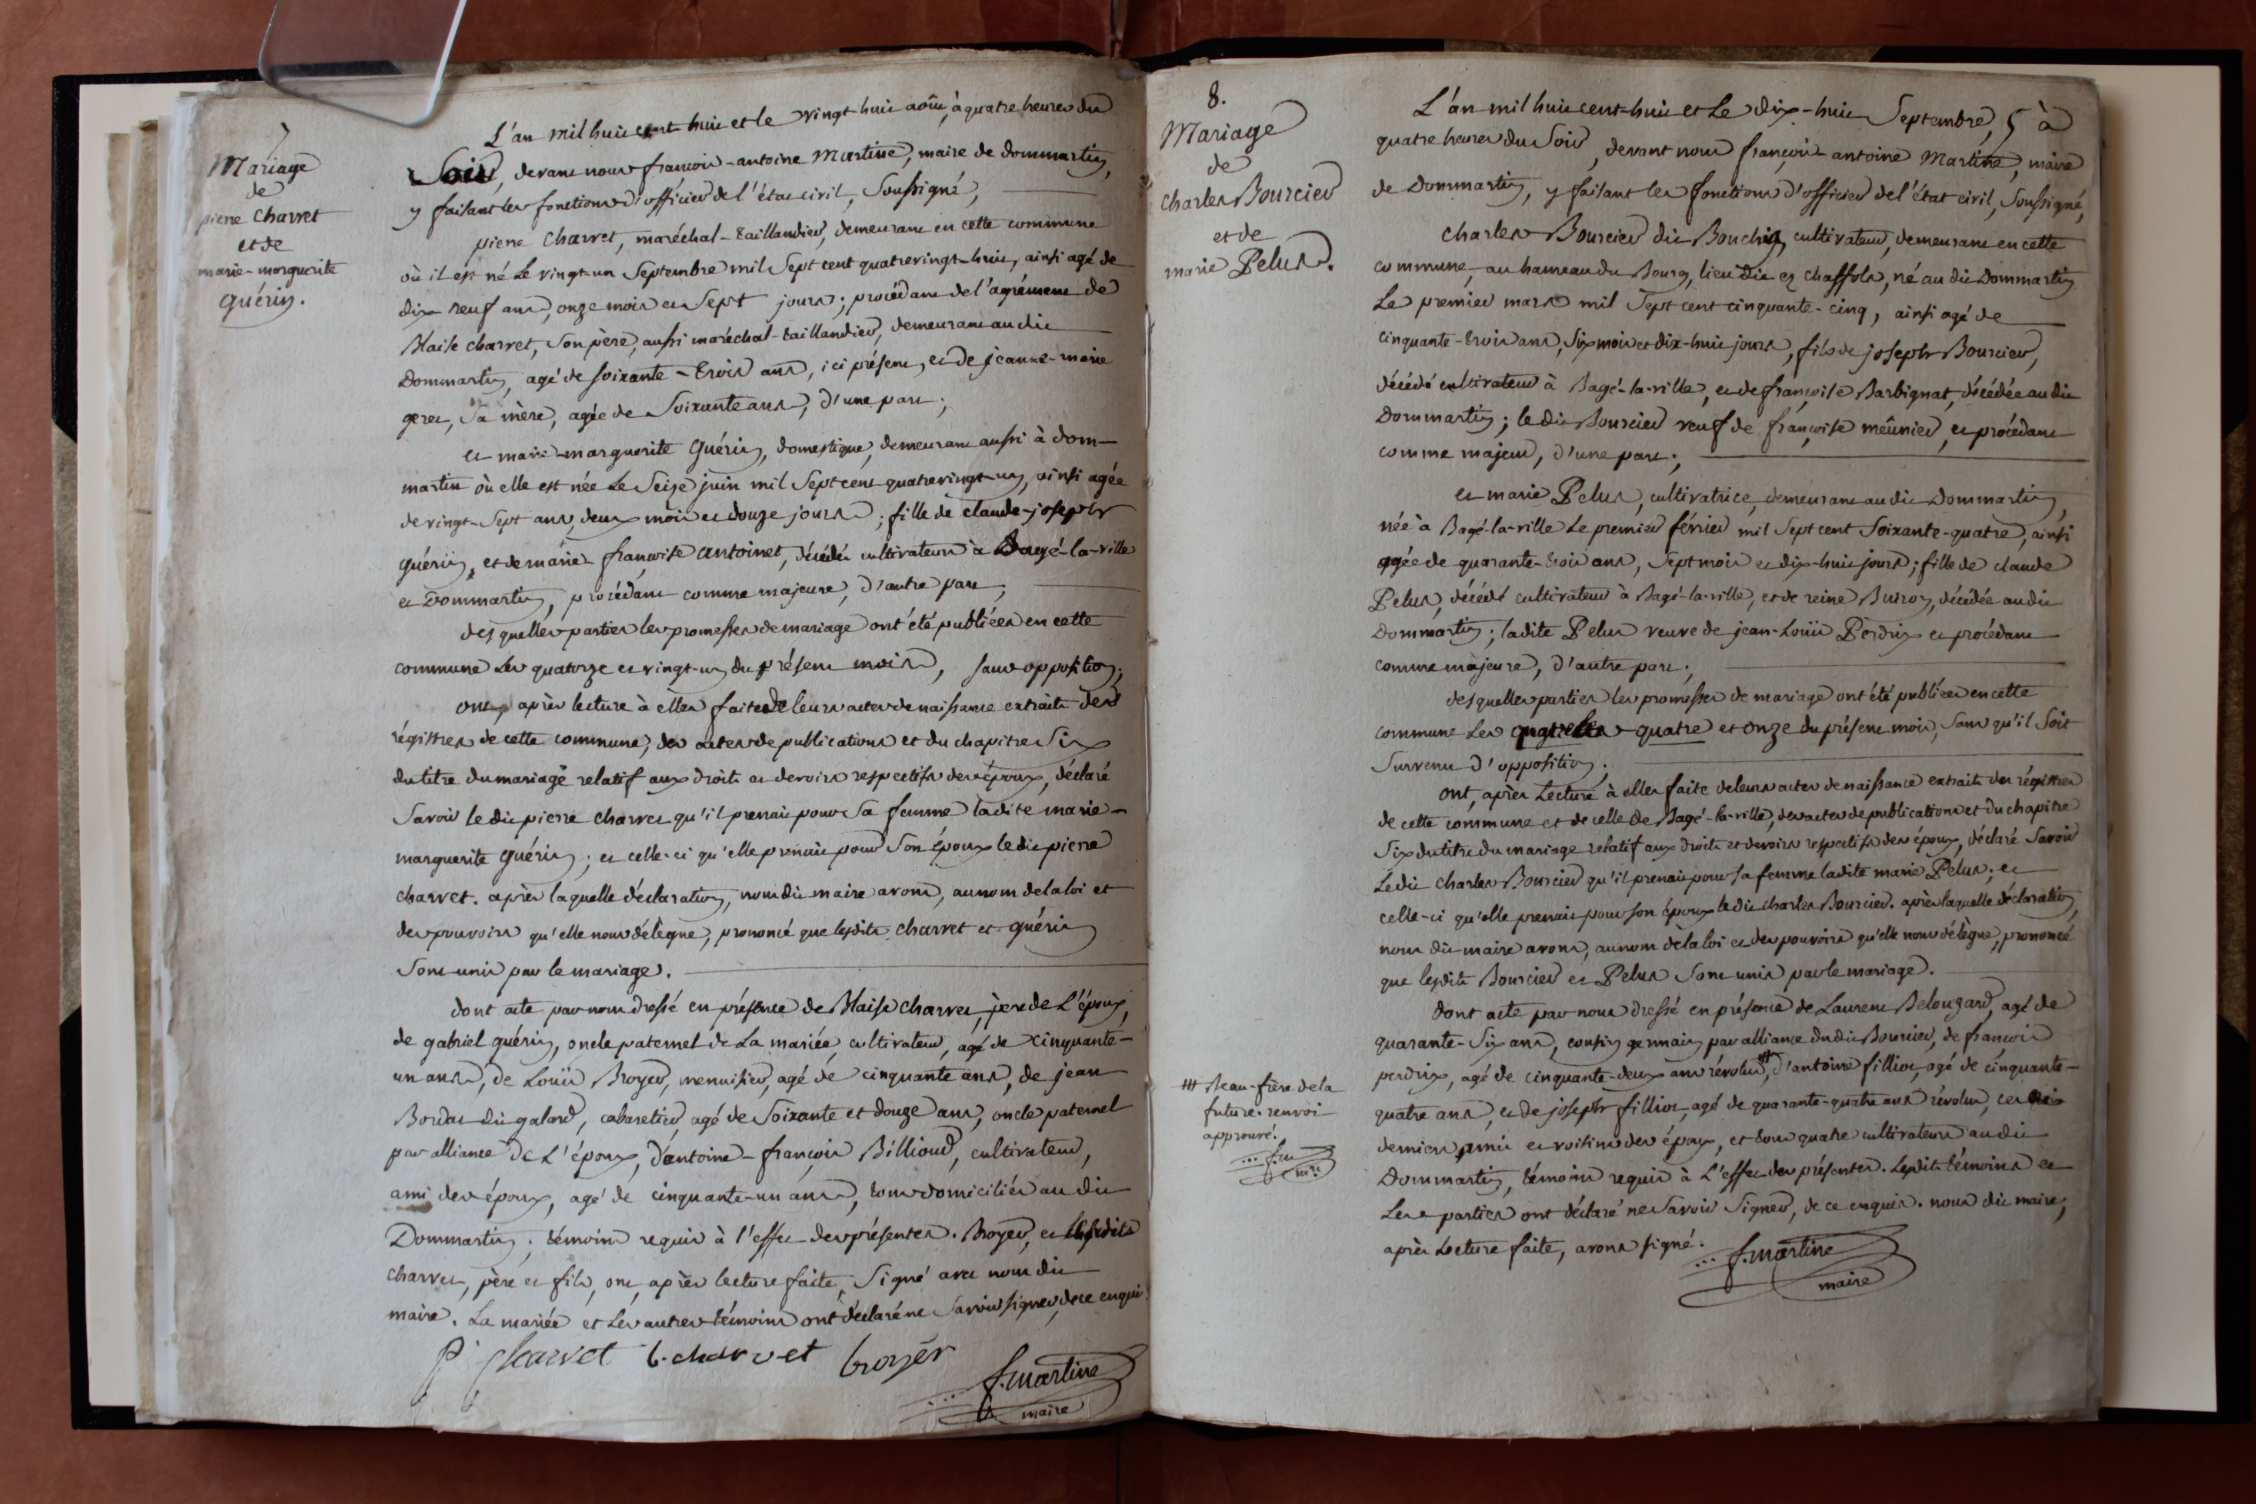 7
Mariage
de
pierre Charvet
et de
marie-marguerite
Guérin.
L'an mil huit cent huit et le vingt-huit août, à quatre heures du
Soir, devant nous françois-antoine Martine, maire de dommartin,
y faisant les fonctions d'officier de l'état civil, Soussigné,
pierre Charvet, maréchal-taillandier, demeurant en cette commune
où il est né Le vingt-un Septembre mil Sept cent quatrevingt-huit, ainsi agé de
dix neuf ans, onze mois et Sept jours; procédant de l'agrément de
Blaise charvet, Son père, aussi maréchal-taillandier, demeurant au dit
Dommartin, agé de soixante-trois ans, ici présent, et de jeanne-marie
gerez, Sa mère, agée de Soixante ans, d'une part;
et marie-marguerite Guérin, domestique, demeurant aussi à dom-
martin où elle est née Le Seize juin mil Sept cent quatrevingt-un, ainsi agée
de vingt-Sept ans, deux mois et douze jours; fille de claude-joseph
guérin, et de marie françoise antoinet, décédés cultivateurs à Bagé-la-ville
et Dommartin, procédant comme majeure, d'autre part,
desquelles parties les promesses de mariage ont été publiées en cette
commune Les quatorze et vingt-un du présent mois, sans opposition;
ont, après lecture à elles faite de leurs actes de naissance extraits des
régistres de cette commune, des actes de publications et du chapitre Six
du titre du mariage relatif aux droits et devoirs respectifs des époux, déclaré
Savoir le dit pierre charvet qu'il prenait pour Sa femme ladite marie-
marguerite guérin; et celle-ci qu'elle prenait pour Son époux ledit pierre
charvet. après laquelle déclaration, nous dit maire avons, au nom de la loi et
des pouvoirs qu'elle nous délègue, prononcé que lesdits charvet et guérin
Sont unis par le mariage.
dont acte par nous dressé en présence de Blaise charvet, père de L'époux,
de gabriel guérin, oncle paternel de La mariée, cultivateur, agé de cinquante-
un ans, de Louis Broyer, menuisier, agé de cinquante ans, de jean
Bordat dit galand, cabaretier, agé de Soixante et douze ans, oncle paternel
par alliance de L'époux, d'antoine-françois Billioud, cultivateur,
ami des époux, agé de cinquante-un ans, tous domiciliés au dit
Dommartin, témoins requis à l'effet des présentes. Broyer, et lesdits
charvet, père et fils, ont, après lecture faite, Signé avec nous dit
maire. La mariée et Les autres témoins ont déclaré ne Savoir signer, de ce enquis.
P. Charvet b. charvet broyer
f. martine
maire
8.
Mariage
de
Charles Bourcier
et de
marie Pelus.
L'an mil huit cent huit et Le dix-huit Septembre, à
quatre heures du Soir, devant nous françois-antoine Martine, maire
de Dommartin, y faisant les fonctions d'officier de l'état civil, Soussigné,
Charles Bourcier dit Bouchy, cultivateur, demeurant en cette
commune, au hameau du Bourg, lieu dit ez chaffols, né au dit Dommartin
Le premier mars mil Sept cent cinquante-cinq, ainsi agé de
cinquante-trois ans, Six mois et dix-huit jours, fils de joseph Bourcier,
décédé cultivateur à Bagé-la-ville, et de françoise Barbignat, décédée au dit
Dommartin; le dit Bourcier veuf de françoise meûnier, et procédant
comme majeur, d'une part;
et marie Pelus, cultivatrice, demeurant au dit Dommartin,
née à Bagé-la-ville Le premier février mil Sept cent Soixante-quatre, ainsi
agée de quarante-trois ans, Sept mois et dix-huit jours; fille de claude
Pelus, décédé cultivateur à Bagé-la-ville, et de reine Buiron, décédée au dit
Dommartin; ladite Pelus veuve de jean-Louis Perdrix et procédant
comme majeure, d'autre part;
desquelles parties les promesses de mariage ont été publiées en cette
commune Les quatre et onze du présent mois, Sans qu'il Soit
Survenu d'opposition;
ont, après Lecture à elles faite de leurs actes de naissance extraits des régistres
de cette commune et de celle de Bagé-la-ville, des actes de publications et du chapitre
Six du titre du mariage relatif aux droits et devoirs respectifs des époux, déclaré Savoir
Le dit Charles Bourcier qu'il prenait pour sa femme ladite marie Pelus; et
celle-ci qu'elle prenait pour son époux le dit charles Bourcier. après laquelle déclaration,
nous dit maire avons, au nom de la loi et des pouvoirs qu'elle nous délègue, prononcé
que lesdits Bourcier et Pelus Sont unis par le mariage.
dont acte par nous dressé en présence de Laurent Belouzard, agé de
quarante-Six ans, cousin germain par alliance du dit Bourcier, de françois
perdrix, agé de cinquante-deux ans révolus, # d'antoine fillion, agé de cinquante-
quatre ans, et de joseph fillion, agé de quarante-quatre ans révolus, ces
derniers amis et voisins des époux, et tous quatre cultivateurs au dit
Dommartin, témoins requis à L'effet des présentes. Lesdits témoins et
Les parties ont déclaré ne Savoir Signer, de ce enquis. nous dit maire,
après Lecture faite, avons signé.
f. martine
maire
# Beau-frère de la
future. renvoi
approuvé.
f. m.